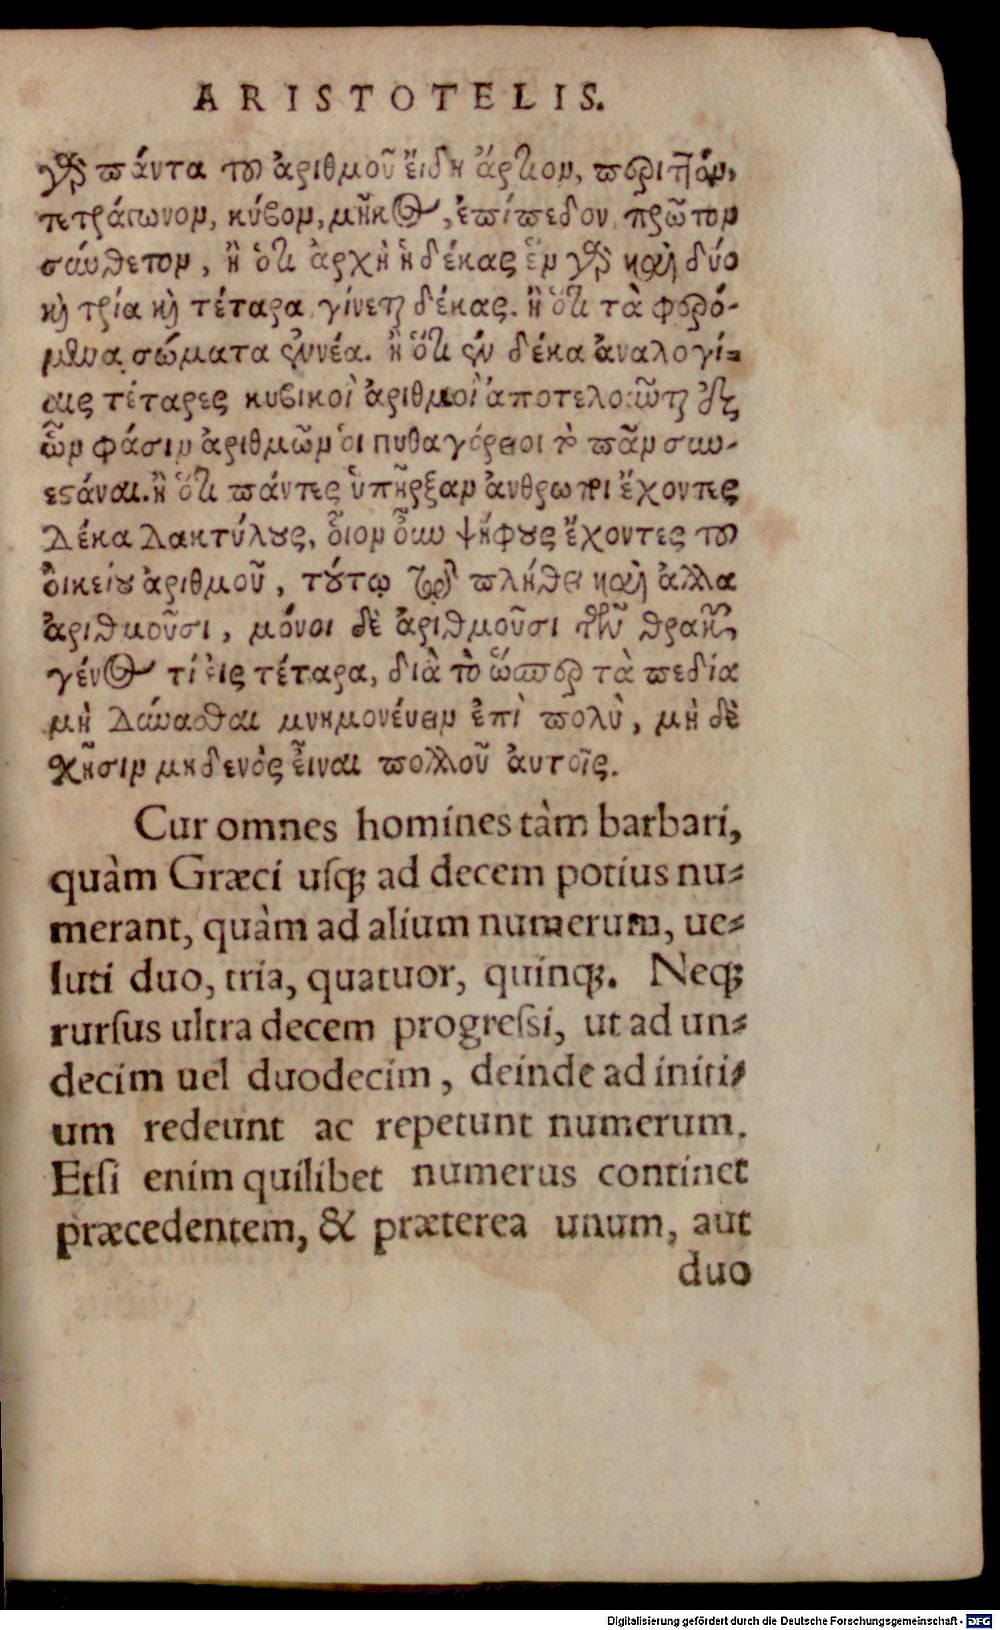 ARISTOTELIS.
γὰρ πάντα τοῦ ἀριθμοῦ ἔιδη ἄρτιον, περιττόν,
τετράγωνον, κύβον, μῆκος, ἐπίπεδον, πρῶτον
σύνθετον, ἢ ὅτι ἀρχὴ ἡ δέκας ἓν γὰρ καὶ δύο
καὶ τρία καὶ τέταρα γίνεται δέκας. ἢ ὅτι τὰ φερό-
μενα σώματα ἐννέα. ἢ ὅτι ἐν δέκα ἀναλογί=
αις τέταρες κυβικοὶ ἀριθμοὶ ἀποτελοῦνται ἐξ
ὧν φάσιν ἀριθμῶν ὁι πυθαγόρειοι τὸ πᾶν συν-
εστάναι. ἢ ὅτι πάντες ὑπῆρξαν ἀνθρωποι ἔχοντες
δέκα δακτύλους, ὅιον οὖν ψήφους ἔχοντες τοῦ
ὀικείου ἀριθμοῦ, τούτῳ τῷ πλήθει καὶ ἀλλα
ἀριθμοῦσι, μόνοι δὲ ἀριθμοῦσι τῶν θρακῶν
γένος τὶ ἐις τέταρα, διὰ τὸ ὥσπερ τὰ πεδία
μὴ δύνασθαι μνημονέυειν ἐπὶ πολὺ, μὴ δὲ
χῆσιν μηδενὸς ἐῖναι πολλοῦ ἀυτοῖς.
Cur omnes homines tàm barbari,
quàm Græci uſq; ad decem potius nu=
merant, quàm ad alium numerum, ue=
luti duo, tria, quatuor, quinq;. Neq;
rurſus ultra decem progreſsi, ut ad un=
decim uel duodecim, deinde ad initi=
um redeunt ac repetunt numerum.
Etſi enim quilibet numerus continet
præcedentem, & præterea unum, aut
duo
Digitalisierung gefördert durch die Deutsche Forschungsgemeinschaft - DFG